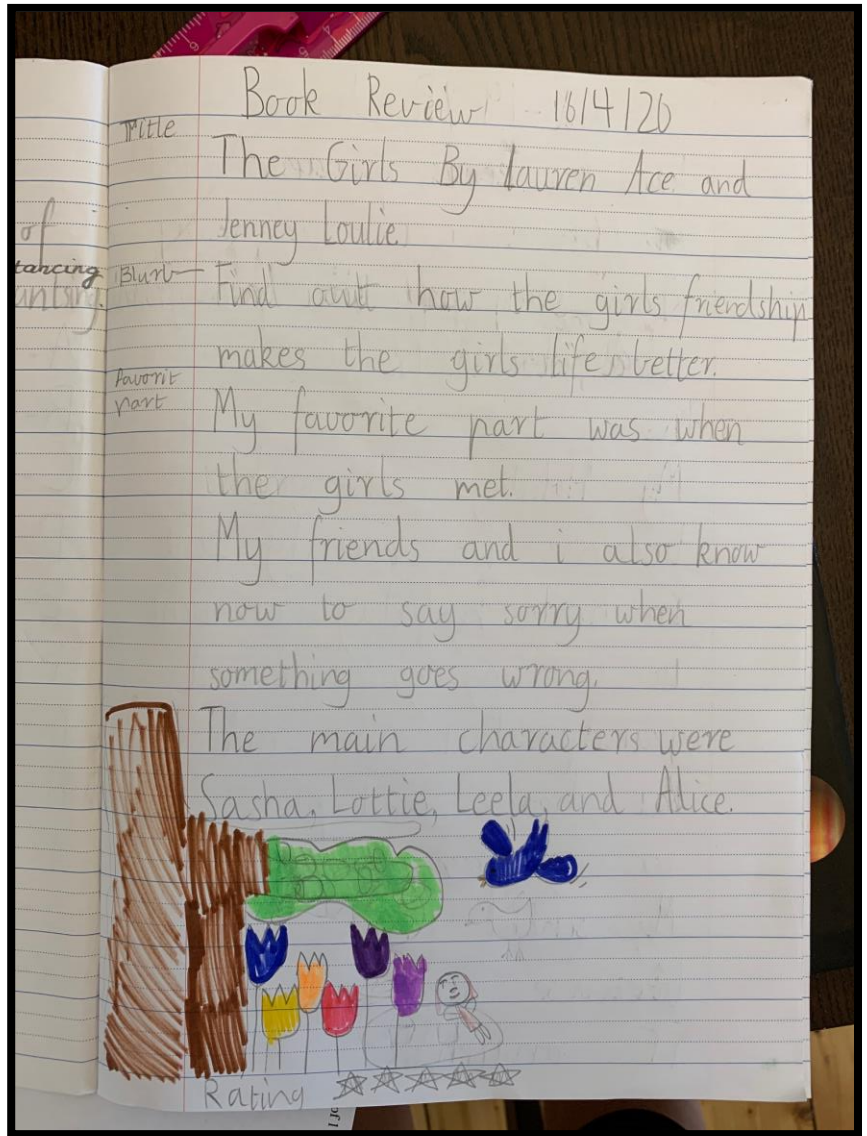 Book Review 16/4/20
Title
The Girls By Lauren Ace and
Jenney Loulie
of
tancing
Blurb
Find out how the girls friendship
makes the girls life better.
favorit
part
My favorite part was when
the girls met.
My friends and i also know
how to say sorry when
something goes wrong.
The main characters were
Sasha, Lottie, Leela, and Alice.
Rating